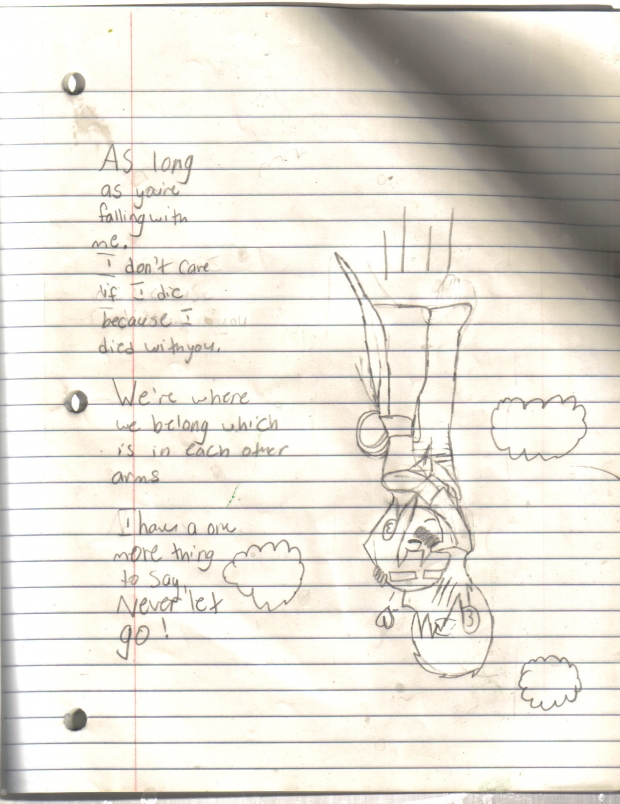 As long
as you're
falling with
me.
I don't care
if I die
because I
died with you.
We're where
we belong which
is in each other
arms
I have a one
more thing
to say,
Never let
go!